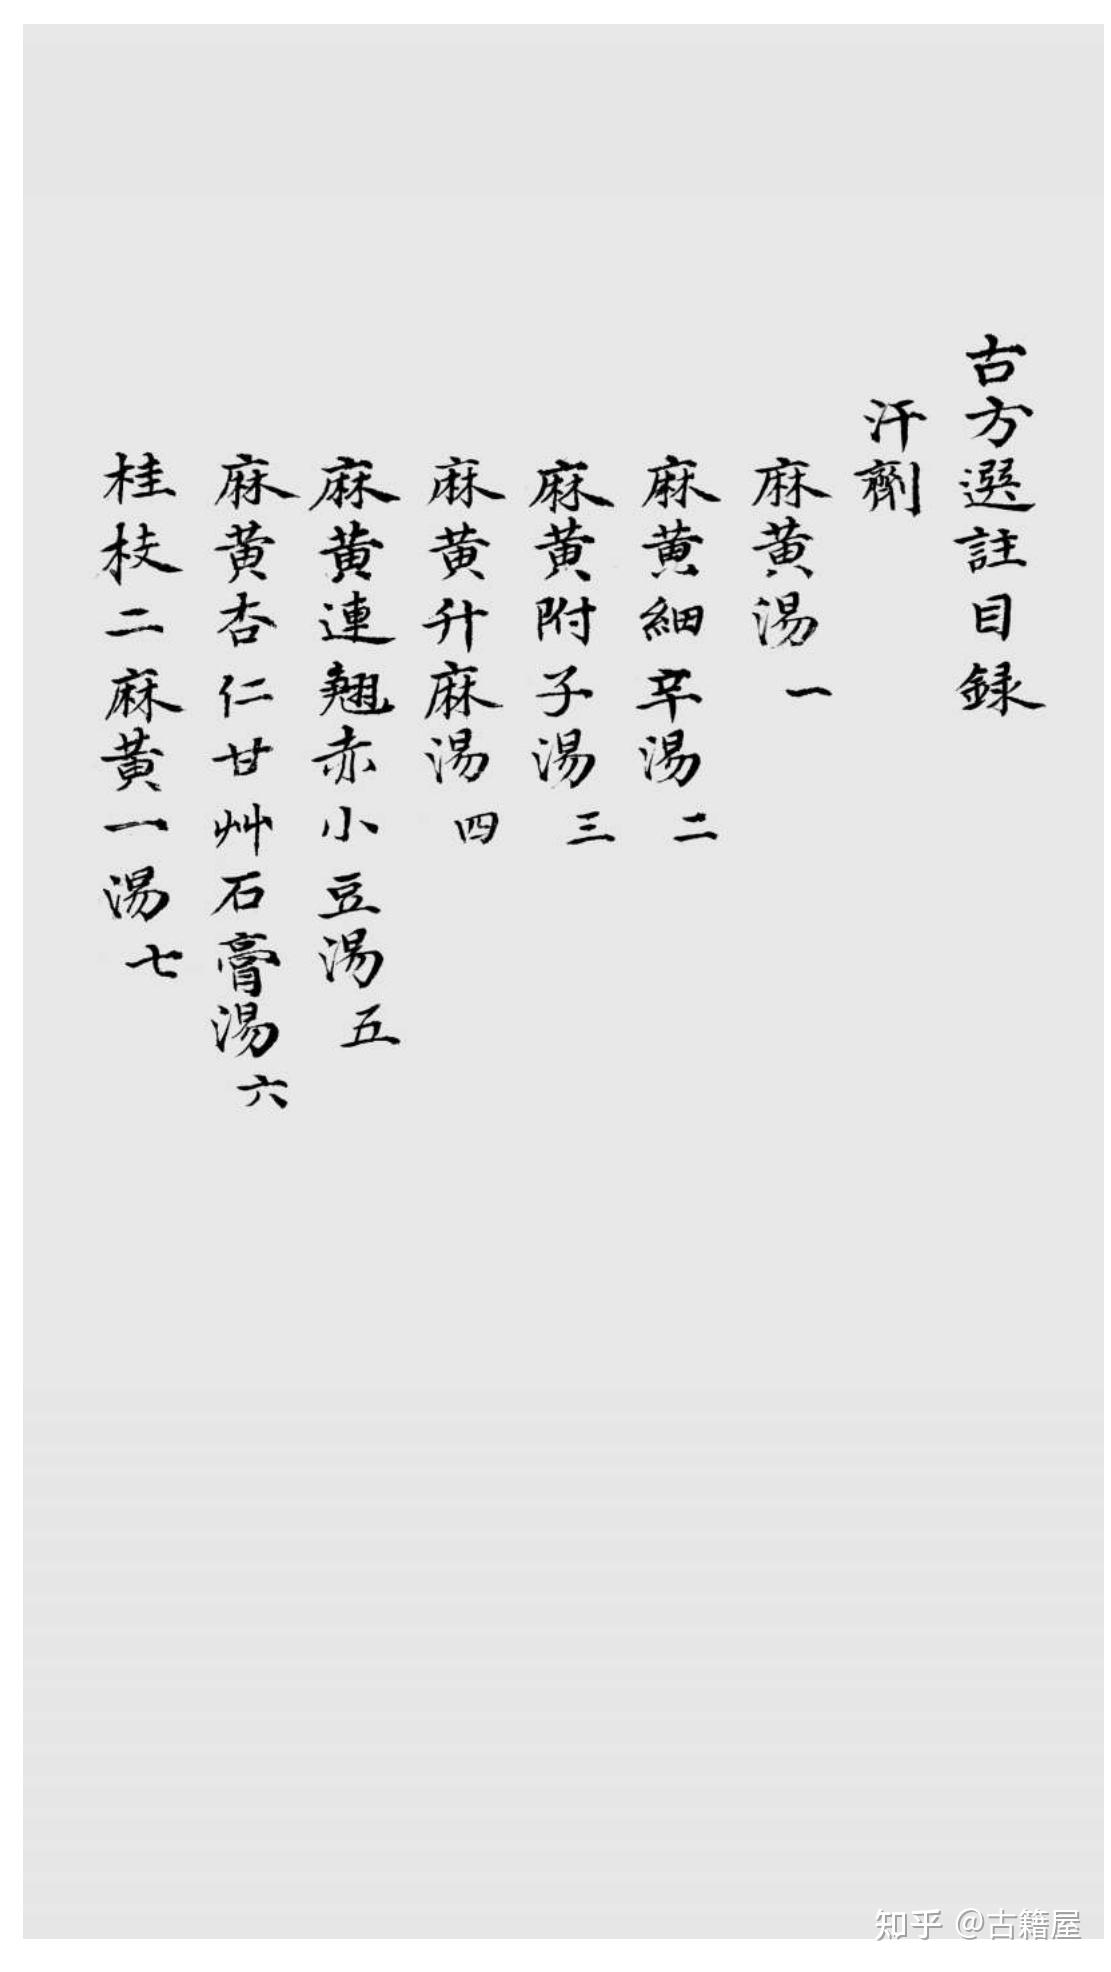 古方選註目録
汗劑
麻黄湯 一
麻黄細辛湯 二
麻黄附子湯 三
麻黄升麻湯 四
麻黄連翹赤小豆湯 五
麻黄杏仁甘艸石膏湯 六
桂枝二麻黄一湯 七
知乎 @古籍屋